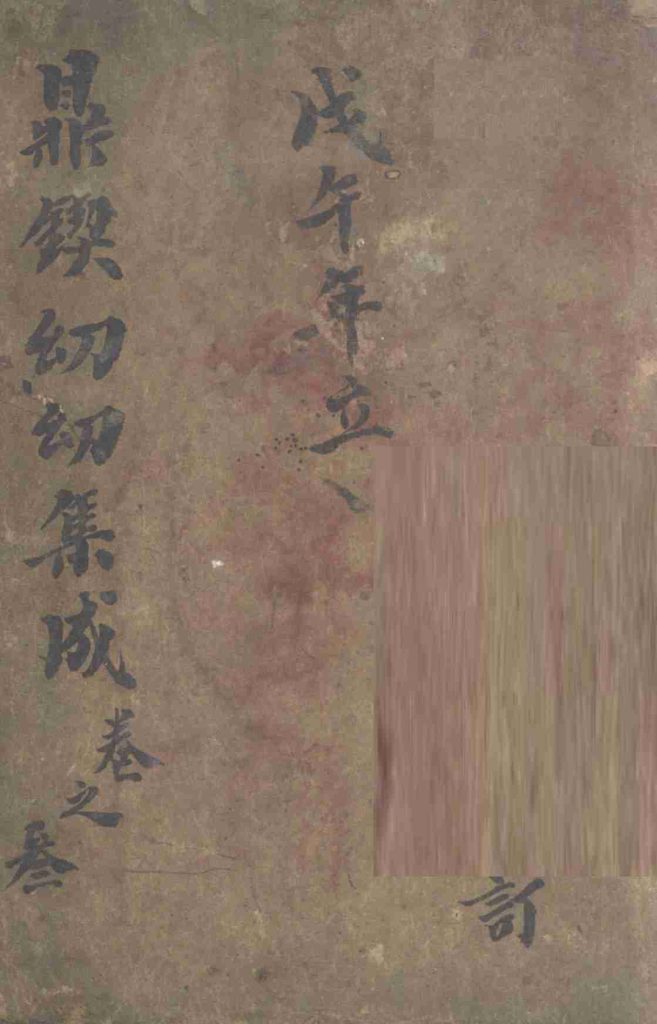 訂
戊午年立
鼎鍥幼幼集成卷之叄